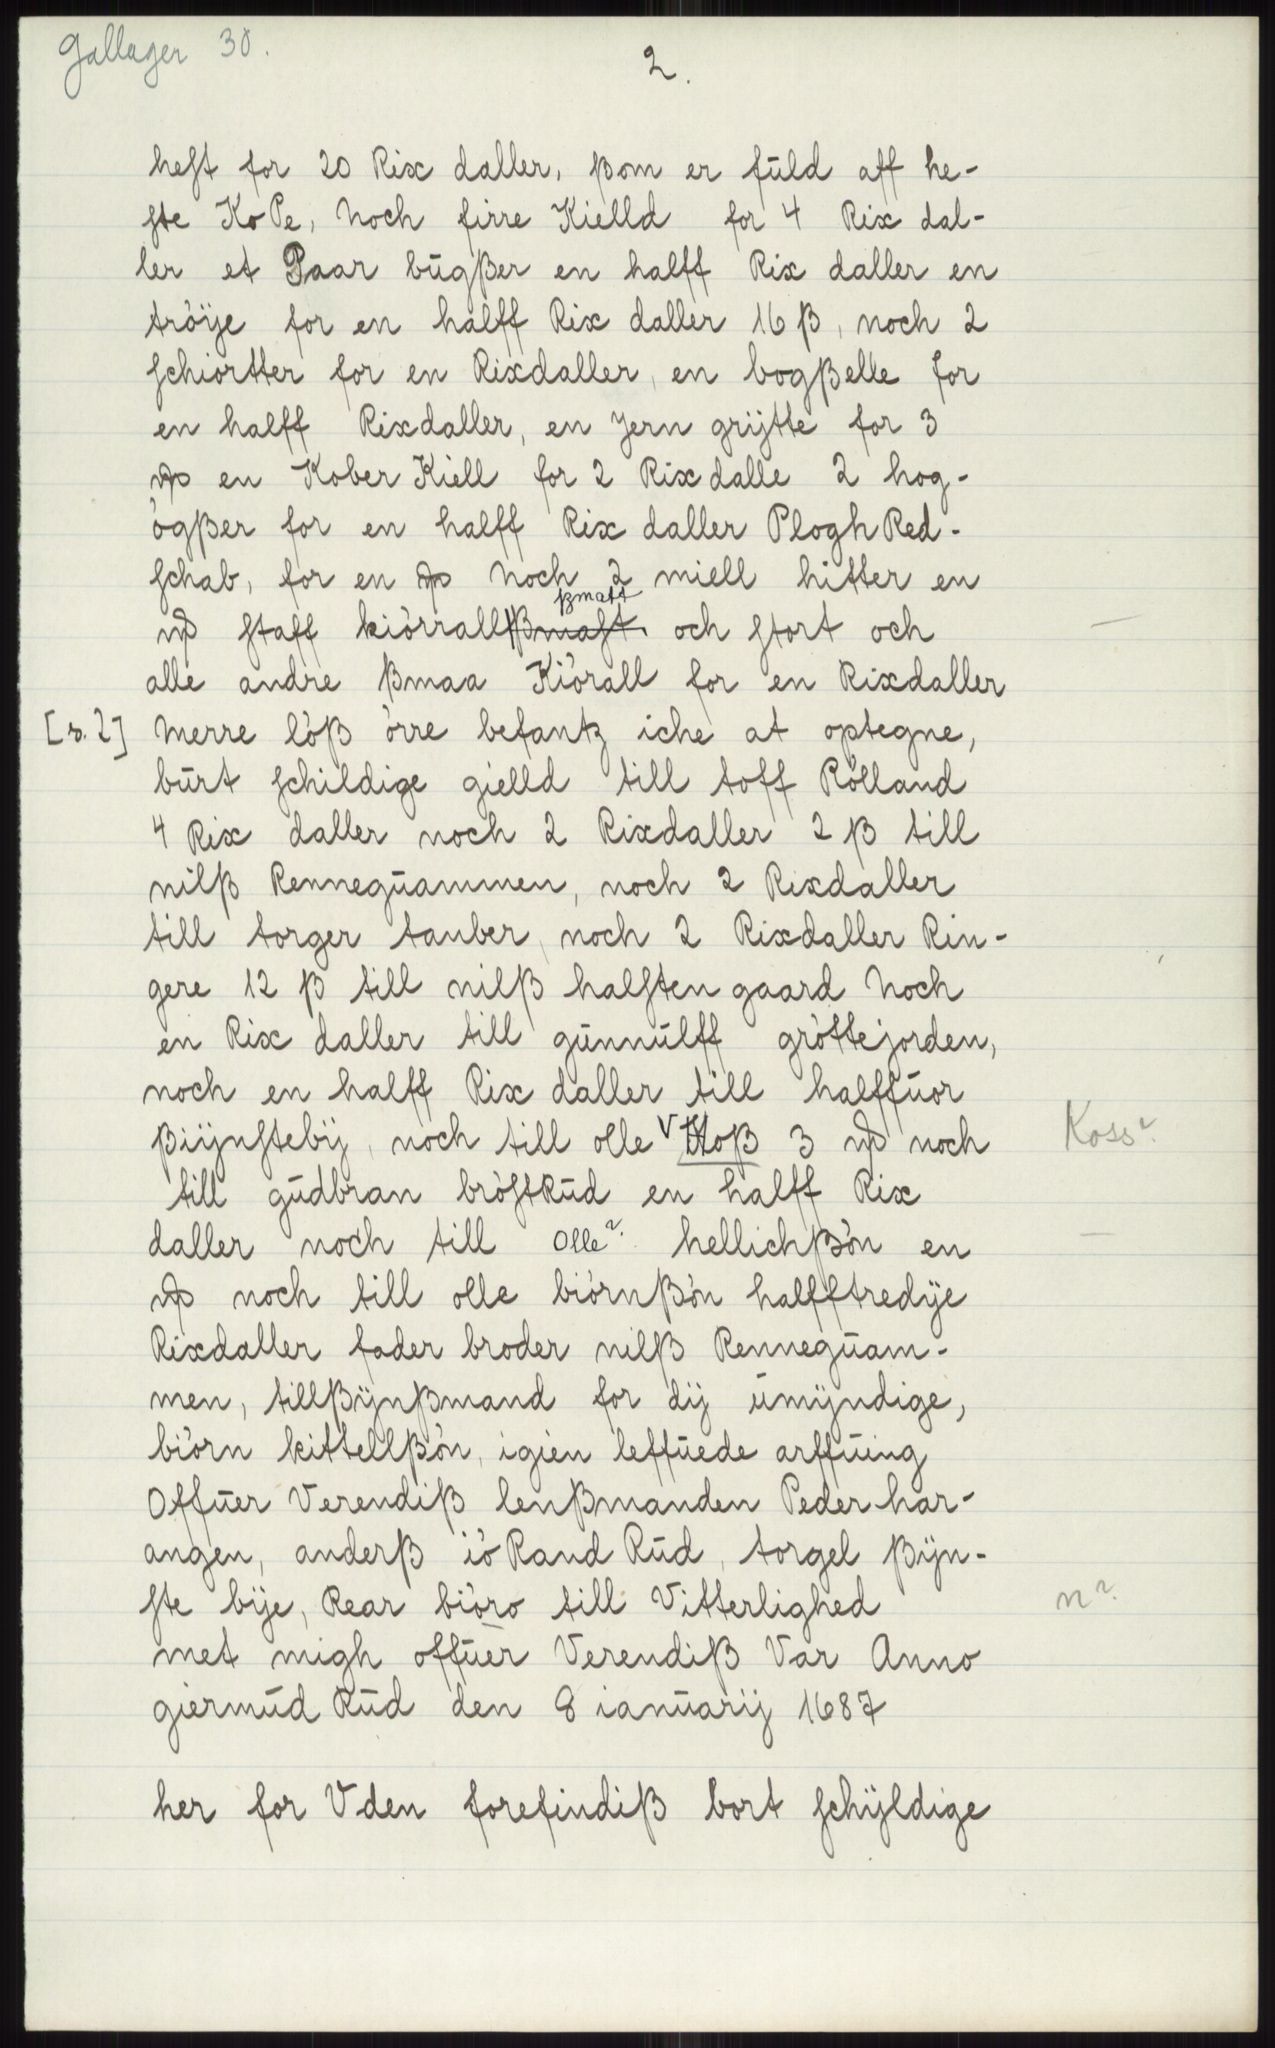 Gallager 30.
2.
heft for 20 Rix daller, ßom er fūld aff he-
fte KoPe, Noch firre Kielld for 4 Rix dal-
ler et Paar būgßer en halff Rix daller en
tröÿe for en halff Rix daller 16 ß, noch 2
schiortter for en Rixdaller, en bogßelle for
en halff Rixdaller, en Jern grÿtte for 3
en Kober Kiell for 2 Rixdalle 2 hog-
ögßer for en halff Rix daller Plogh Red-
schab, for en Noch 2 miell hitter en
ßmatt
staff kiörrall ßmast och stort och
alle andre ßmaa Kiörall for en Rixdaller
[s. 2] Merre löß örre befantz iche at optegne,
būrt schildige gielld till toff Rölland
4 Rix daller noch 2 Rixdaller 2 ß till
nilß Rennegūammen, noch 2 Rixdaller
till torger tauber, noch 2 Rixdaller Rin-
gere 12 ß till nilß halstengaard Noch
en Rix daller till gūnnūlff gröttejorden,
noch en halff Rix daller till halffūor
ßiÿnstebÿ, noch till olle Hoß 3 noch Koss?
till gūdbran bröstRūd en halff Rix
daller noch till Olle? hellichßön en
noch till olle biörnßön halfftredÿe
Rixdaller fader broder nilß Rennegūam-
men, tillßÿnßmand for dÿ ūmÿndige,
biörn kittellßön, igien leffūede arffūing
Offūer Verendiß lenßmanden Peder har-
angen, anderß iö Rand Rūd, torgel ßÿn-
ste bÿe, Rear biöro till Vitterlighed n?
met migh offūer Verendiß Var Anno
giermūd Rūd den 8 ianūarÿ 1687
her for Vden forefindiß bort schÿldige